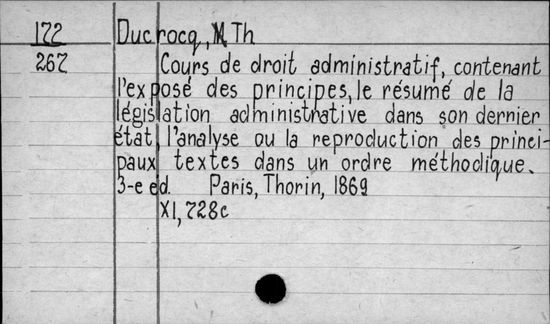 172 Ducrocq, M Th
267 Cours de droit administratif, contenant
l'exposé des principes, le résumé de la
législation administrative dans son dernier
état, l'analyse ou la reproduction des princi-
paux textes dans un ordre méthodique.
3-e ed. Paris, Thorin, 1869
XI, 728c